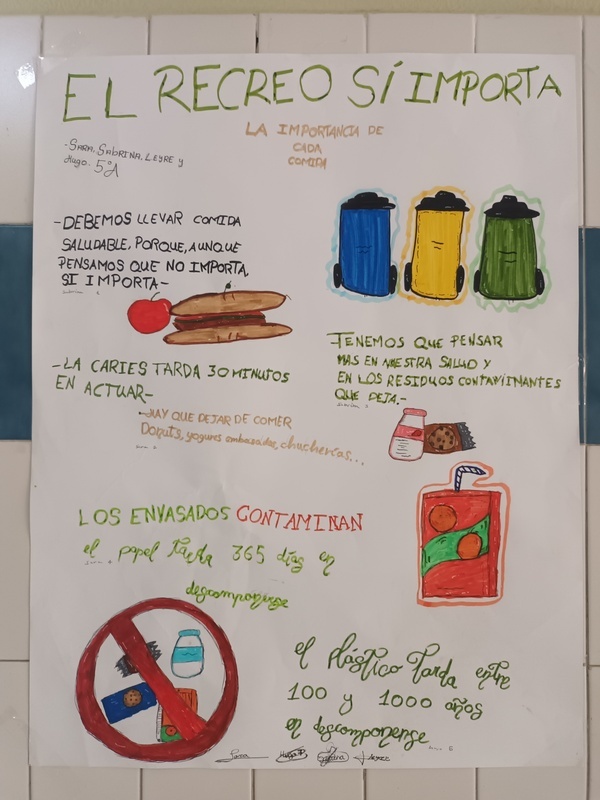 EL RECREO SÍ IMPORTA
LA IMPORTANCIA DE
CADA
COMIDA
-SARA, SABRINA, LEYRE y
Hugo- 5ºA
-DEBEMOS LLEVAR COMIDA
SALUDABLE, PORQUE, AUNQUE
PENSAMOS QUE NO IMPORTA,
SI IMPORTA-
-TENEMOS QUE PENSAR
MAS EN NUESTRA SALUD Y
EN LOS RESIDUOS CONTAMINANTES
QUE DEJA.-
-LA CARIES TARDA 30 MINUTOS
EN ACTUAR-
-HAY QUE DEJAR DE COMER
Donuts, yogures embasados, chucherías...
LOS ENVASADOS CONTAMINAN
el papel tarda 365 días en
descomponerse
el plástico tarda entre
100 y 1000 años
en descomponerse